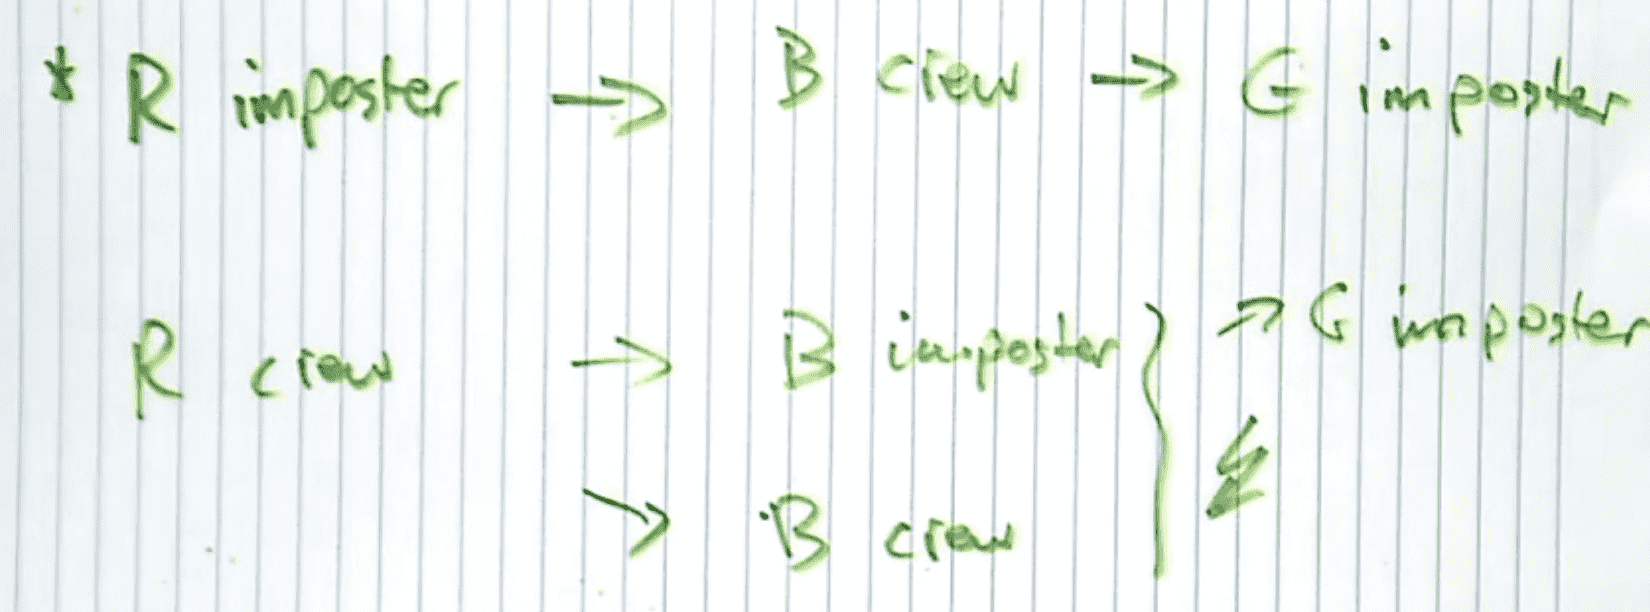 * R imposter → B crew → G imposter
R crew → B imposter } ↗ G imposter
↘ B crew ↯